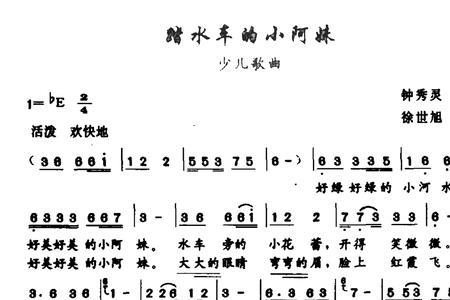 踏水车的小阿妹
少儿歌曲
1=♭E 2/4
钟秀灵
徐世旭
活泼 欢快地
( 36 661 | 12 2 | 553 75 | 6 - ) | 63 335 | 16 6
好绿好绿的小河水
6333 665 | 3 - | 36 661 | 12 2 | 773 35 | 6 -
好美好美的小阿妹。水车旁的小花蕾,开得笑微微。
好美好美的小阿妹。大大的眼睛弯弯的眉,脸上红霞飞。